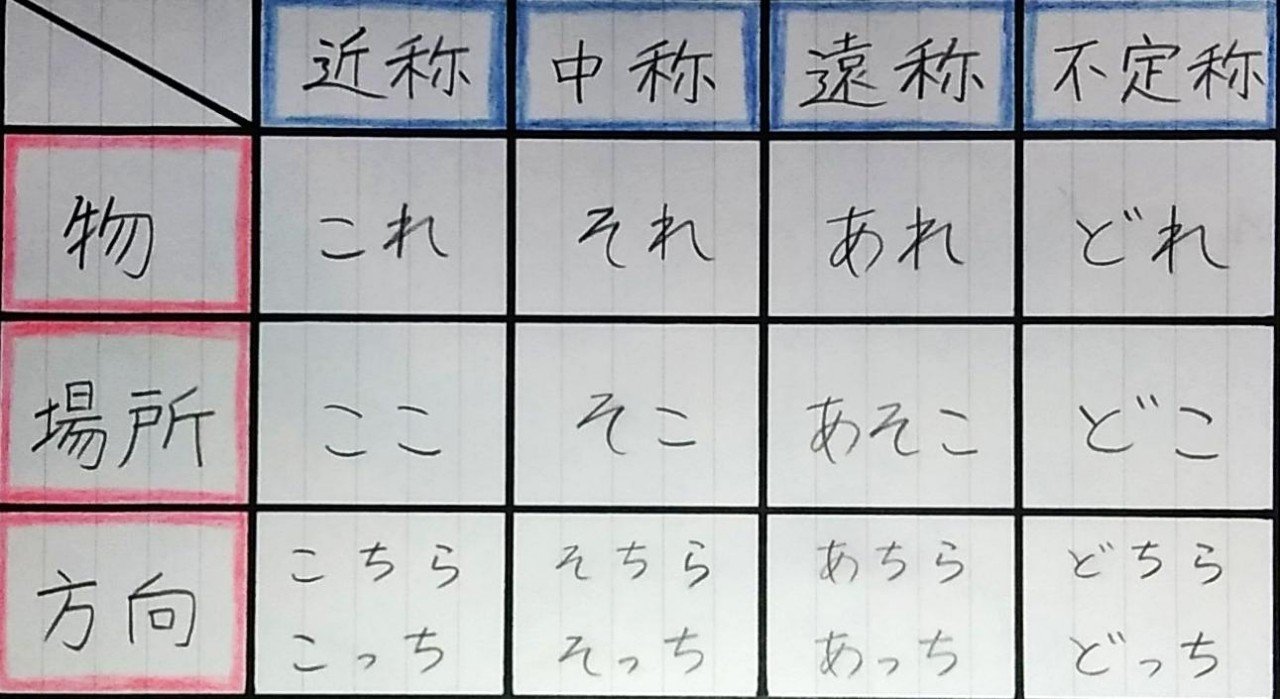 近称 中称 遠称 不定称
物 これ それ あれ どれ
場所 ここ そこ あそこ どこ
方向 こちら そちら あちら どちら
こっち そっち あっち どっち